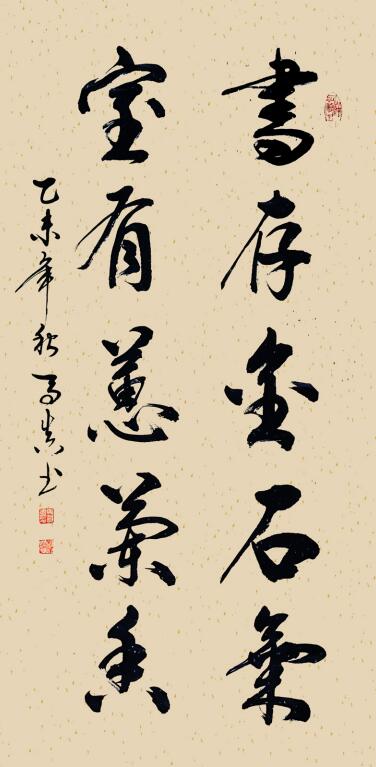 書存金石氣
室有蕙蘭香
乙未年秋馬
書